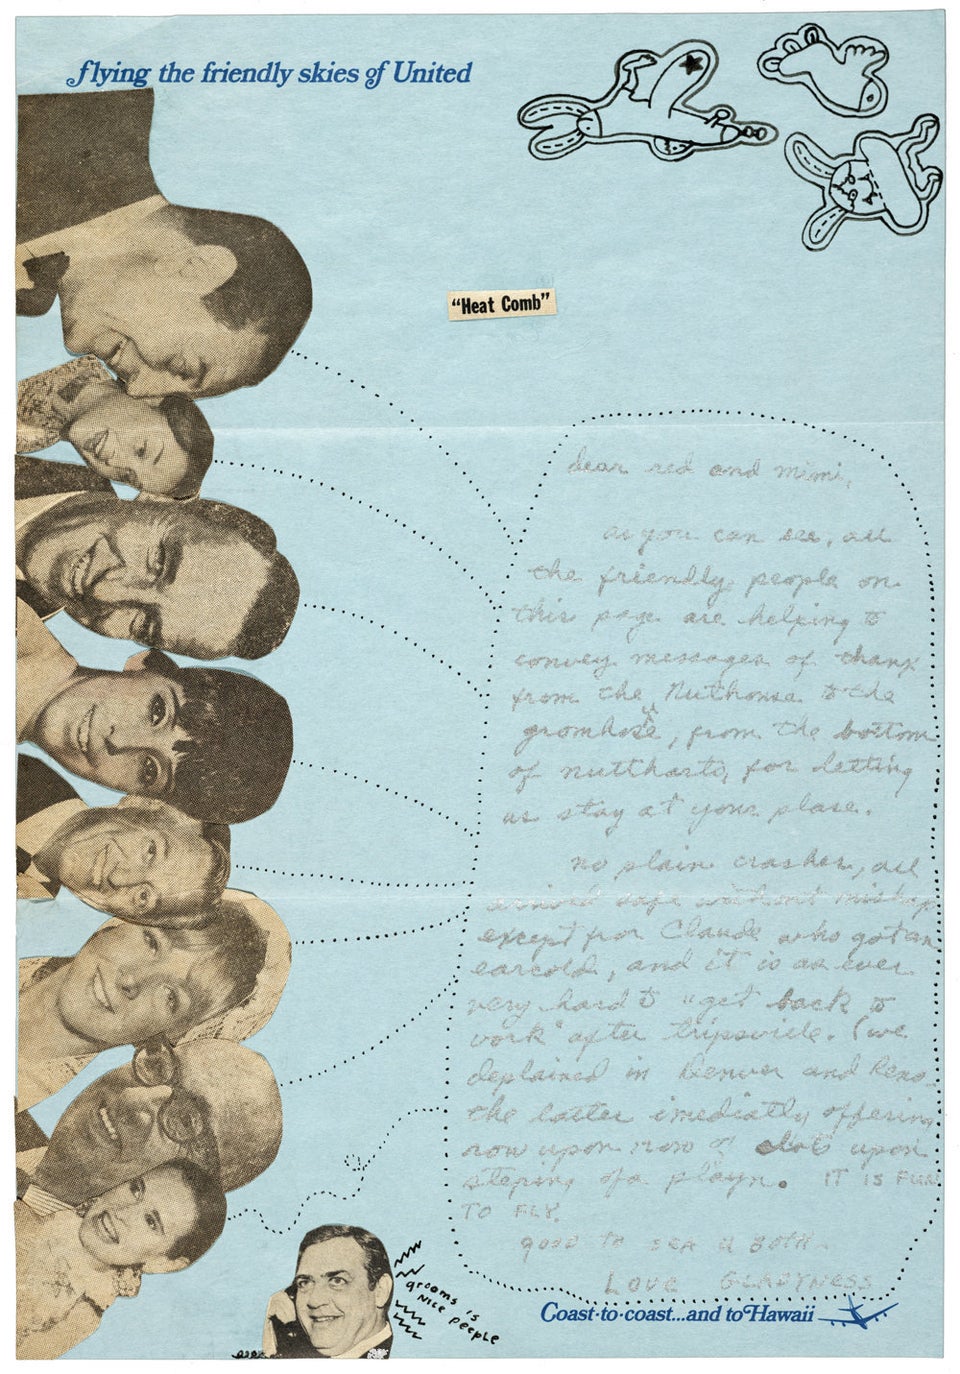 flying the friendly skies of United
"Heat Comb"
dear red and mimi,
as you can see, all
the friendly people on
this page are helping to
convey messages of thanx
from the Nuthouse to the
gromhose, from the bottom
of nuttharts, for letting
us stay at your plase.
no plain crashes, all
arived safe without mishap
except for Claude who got an
earcold, and it is as ever
very hard to "get back to
work" after tripsville. (we
deplained in Denver and Reno
the latter imediatly offering
row upon row of slots upon
steping of a playn. IT IS FUN
TO FLY.
good to sea u both
LOVE GLADYNESS
grooms is
nice people
Coast-to-coast...and to Hawaii